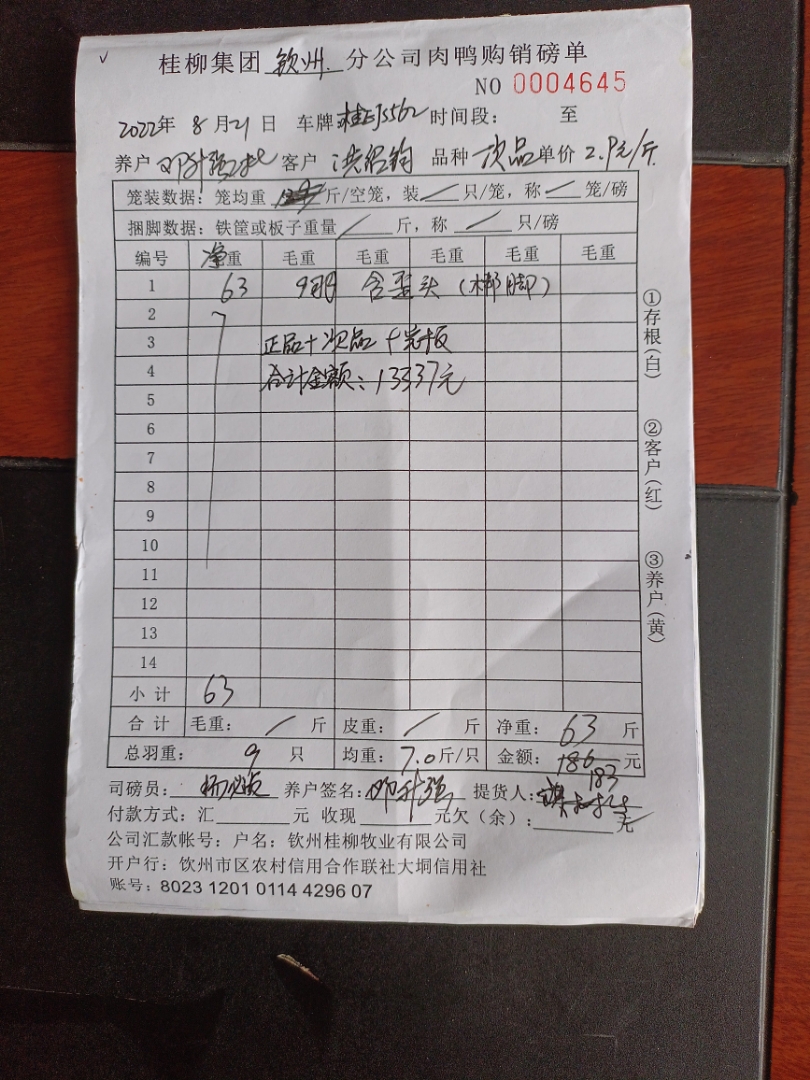 桂柳集团 钦州 分公司肉鸭购销磅单
NO 0004645
2022年 8月21日 车牌 桂 时间段: 至
养户 邓升强 客户 品种 次品 单价 2.9元/斤
笼装数据: 笼均重 斤/空笼, 装 / 只/笼, 称 / 笼/磅
捆脚数据: 铁筐或板子重量 / 斤, 称 / 只/磅
编号 净重 毛重 毛重 毛重 毛重 毛重
1 63 9羽 含歪头 (脚)
2
3 正品+次品+
4 合计金额: 13337元
5
6
7
8
9
10
11
12
13
14
小计 63
合计 毛重: / 斤 皮重: / 斤 净重: 63 斤
总羽重: 9 只 均重: 7.0斤/只 金额: 186 元
183
司磅员: 养户签名: 邓升强 提货人:
付款方式: 汇 元 收现 元欠(余): 元
公司汇款帐号: 户名: 钦州桂柳牧业有限公司
开户行: 钦州市区农村信用合作联社大垌信用社
账号: 8023 1201 0114 4296 07
①存根(白)
②客户(红)
③养户(黄)